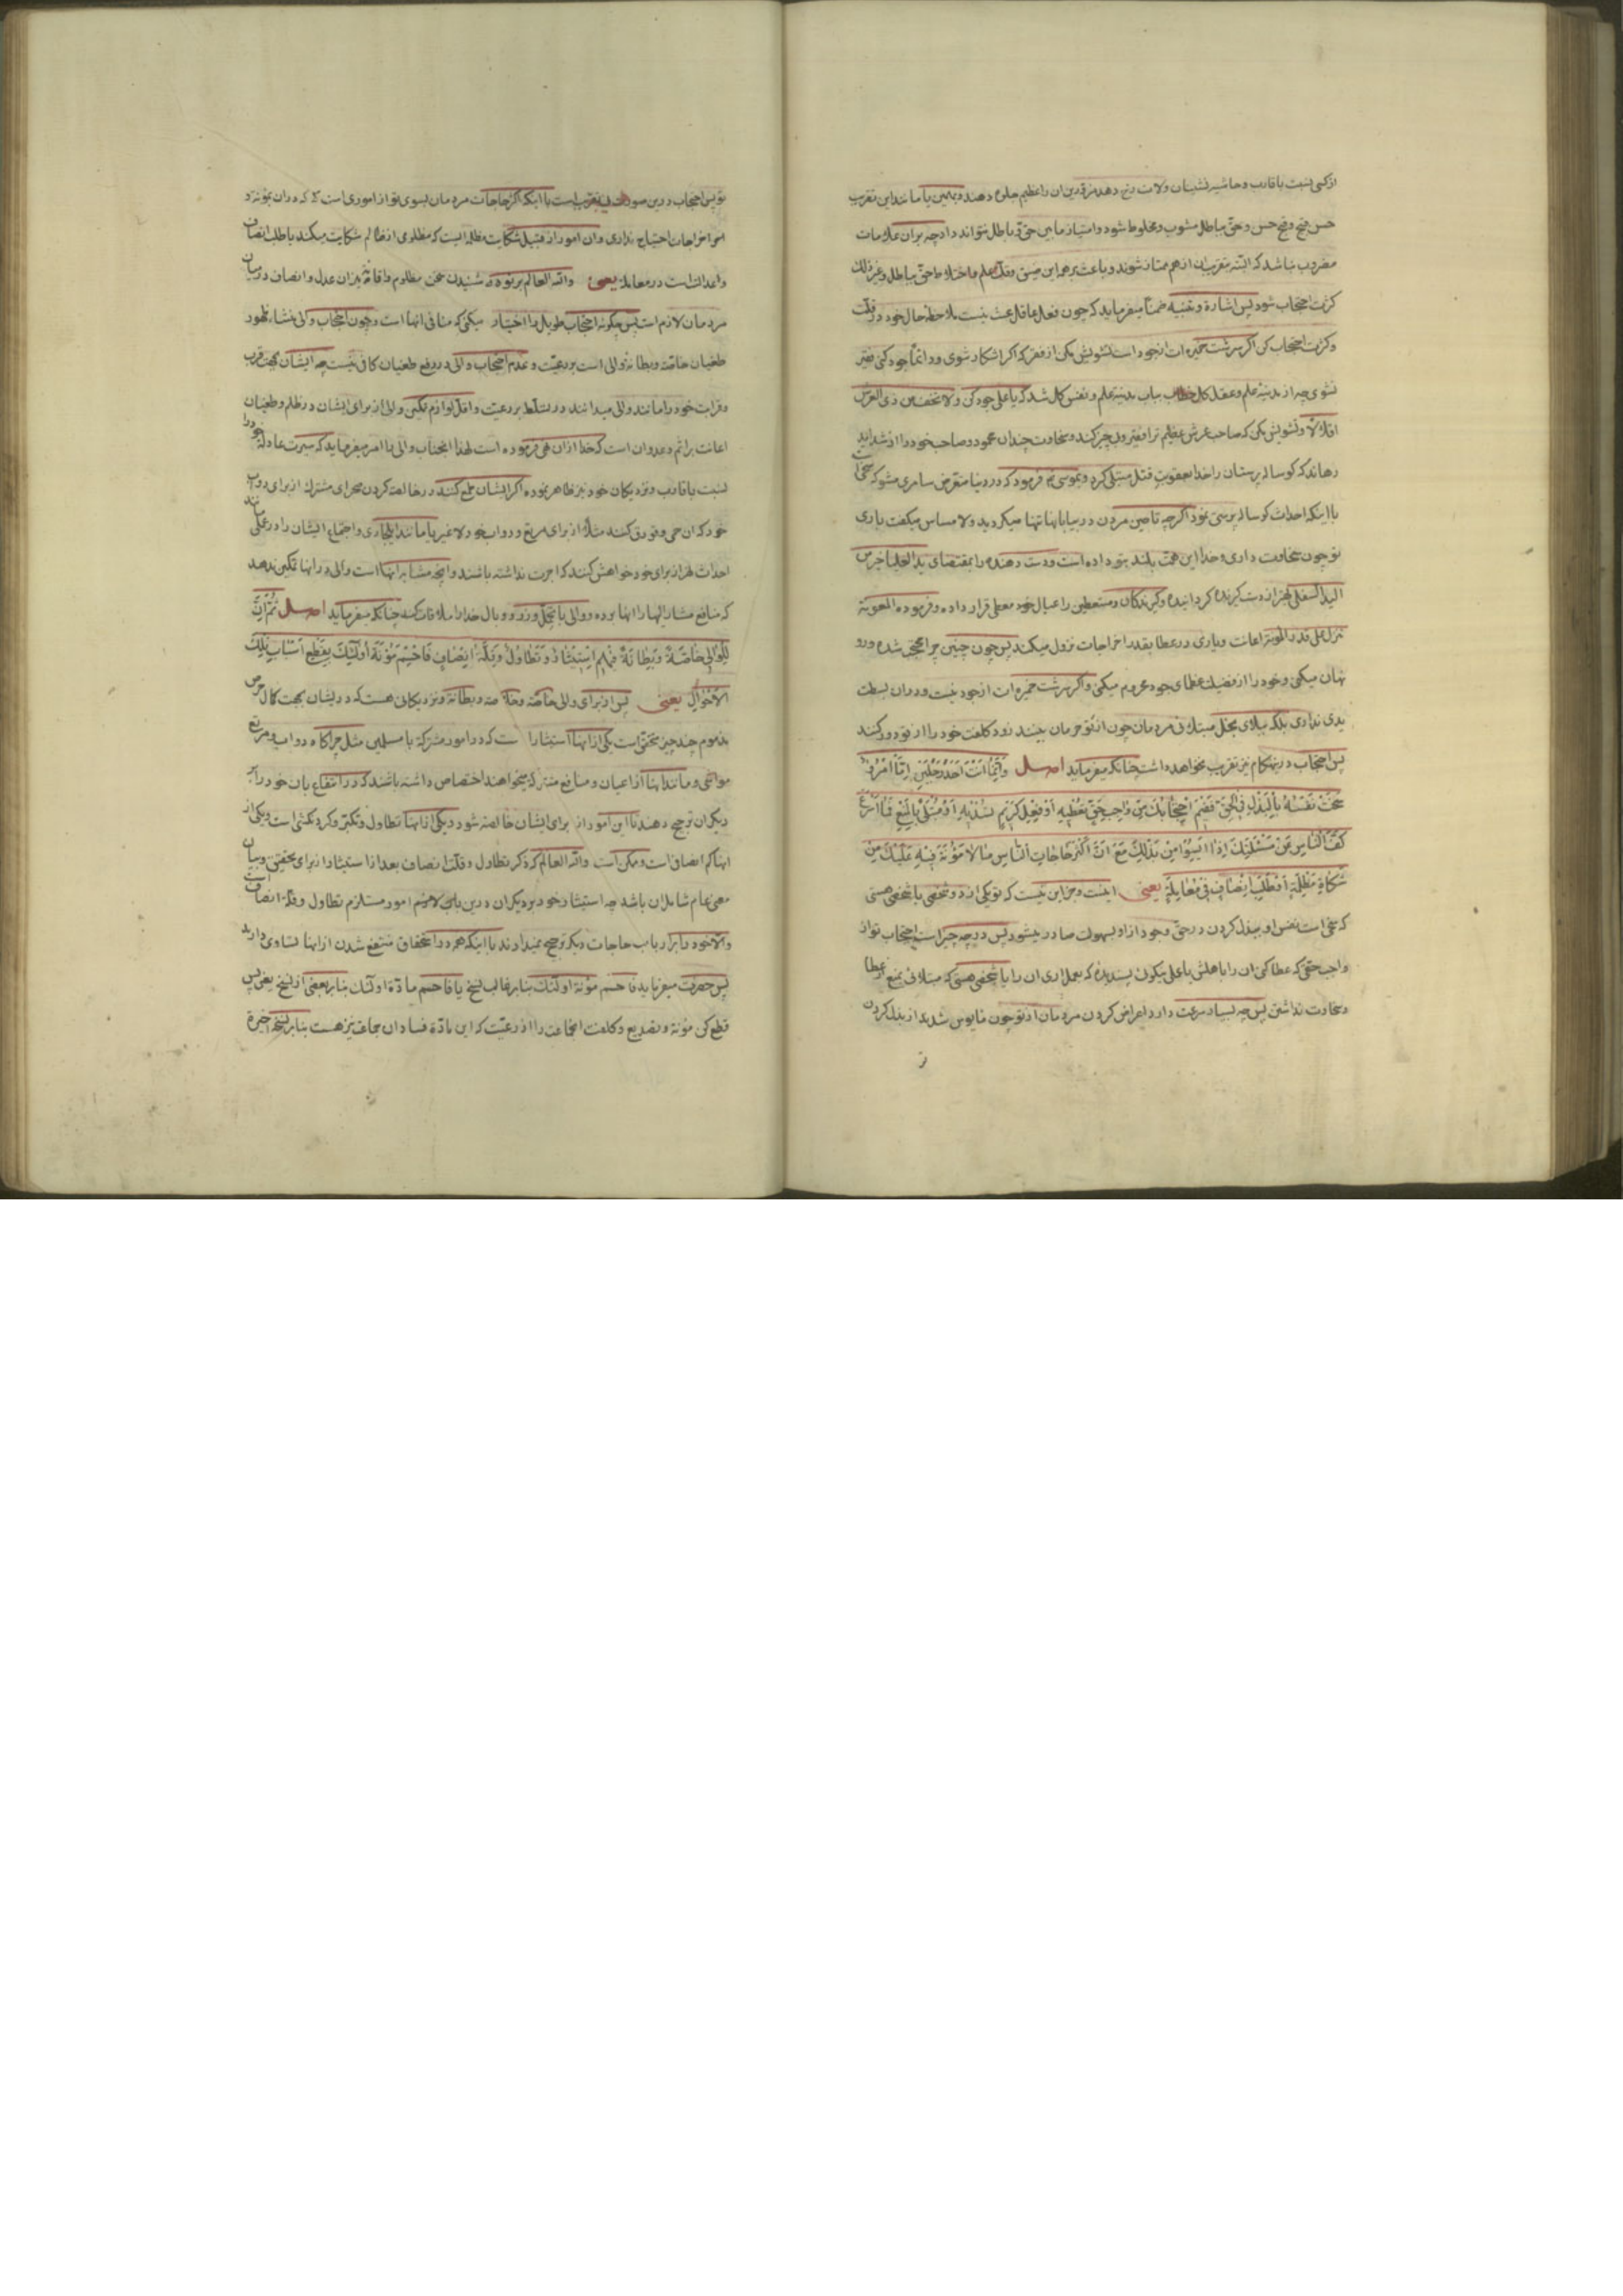 از کسی نسبت باقارب و حاشیه نشینان ولات رنج دهد مرقدرین ان را عظیم جلوه دهند و بهمین یا مانند این تقریب
حسن قبح و قبح حسن و حق بباطل مشوب و مخلوط شود و امتیاز مابین حق و باطل نتواند داد چه بران علامات
مضروب نباشد که البته بتقریب ان از هم ممتاز شوند و باعث برهم این ضیق و قلة علم و اختلاط حق بباطل و غیر ذلک
کثرت احتجاب شود پس اشارة و تنبیه ضمنا میفرماید که چون فعل عاقل عبث نیست ملاحظه حال خود در قلت
و کثرت احتجاب کن اگر سرشت خمیره ات از جود است تشویش مکن از فقر که اگر اشکار شوی و دائما جود کنی فقیر
نشوی چه از مدینه علم و عقل کل خطاب بباب مدینه علم و نفس کل شد که یا علی جود کن ولا تخف من ذی العرش
اقلالا و تشویش مکن که صاحب عرش عظیم ترا فقیر و بی چیز کند و سخاوت چندان محمود و صاحب خود را از شداید
رهاند که کوساله پرستان را خدا بعقوبت قتل مبتلی کرد و بموسی ع فرمود که در دنیا متعرض سامری مشو که سخی است
با اینکه احداث کوساله پرستی نمود اگرچه تا حین مردن در بیابانها تنها میکردید و لا مساس میکفت باری
تو چون سخاوت داری و خدا این همت بلند بتو داده است و دست دهنده را بمقتضای ید العلیا خیر من
الید السفلی بهتر از دست کیرنده کردانیده و کیرندکان و مستعطین را عیال خود معطی قرار داده و فرموده المعونة
تنزل علی قدر المونة اعانت و یاری در عطا بقدر اخراجات نزول میکند پس چون چنین چرا محتجب شده و رو
نهان میکنی و خود را از فضیلت عطای جود محروم میکنی و اگر سرشت خمیره ات از جود نیست و دران بسطت
یدی نداری بلکه ببلای بخل مبتلائی مردمان چون از تو حرمان بینند زود کلفت خود را از تو دور کنند
پس احتجاب درینهنکام نیز تقریب نخواهد داشت چنانکه میفرماید اصل وَاِنَّمٰا اَنْتَ اَحَدُ رَجُلَيْنِ اِمَّا امْرُؤٌ
سَخَتْ نَفْسُهُ بِالْبَذْلِ فِى الْحَقِّ فَفِيْمَ احْتِجٰابُكَ مِنْ وٰاجِبِ حَقٍّ تُعْطِيْهِ اَوْ فِعْلٍ كَرِيْمٍ تُسْدِيْهِ اَوْ مُبْتَلًى بِالْمَنْعِ فَمٰا اَسْرَعَ
كَفَّ النّٰاسِ عَنْ مَسْئَلَتِكَ اِذٰا اَيِسُوْا مِنْ بَذْلِكَ مَعَ اَنَّ اَكْثَرَ حٰاجٰاتِ النّٰاسِ مٰا لاٰ مَؤُنَةَ فِيْهِ عَلَيْكَ مِنْ
شَكٰاةِ مَظْلِمَةٍ اَوْ طَلَبِ اِنْصٰافٍ فِى مُعٰامَلَةٍ یعنی اینست و جز این نیست که تو یکی از دو شخصی یا شخصی هستی
که سخی است نفس او ببذل کردن در حق و جود از او بسهولت صادر میشود پس در چه چیز است احتجاب تو از
واجب حقی که عطا کنی ان را باهلش یا عملی نیکوی پسندیده که بعمل اری ان را یا شخصی هستی که مبتلائی بمنع از عطا
و سخاوت نداشتن پس چه بسیار سرعت دارد اعراض کردن مردمان از تو چون مایوس شدند از بذل کردن
تو پس احتجاب درین صورت بیتقریب است با اینکه اکثر حاجات مردمان بسوی تو از اموری است که دران بمؤنه و
اخراجات احتیاج نداری و ان امور از قبیل شکایت مظلمه ایست که مظلومی از ظالم شکایت میکند یا طلب انصاف
و اعدالتست در معامله یعنی والله العالم بر تو شنیدن سخن مظلوم و اقامه میزان عدل و انصاف در میان
مردمان لازم است پس چکونه احتجاب طویل را اختیار میکنی که منافی انها است و چون احتجاب والی منشاء ظهور
طغیان خاصه و بطانه والی است بر رعیت و عدم احتجاب والی در رفع طغیان کافی نیست چه ایشان بجهت قرب
و قرابت خود را مانند والی میدانند در تسلط بر رعیت و اقل لوازم تمکین والی از برای ایشان در ظلم و طغیان
اعانت بر اثم و عدوان است که خدا ازان نهی فرموده است لهذا انجناب والی را امر میفرماید که سیرت عادله خود را
نسبت باقارب و نزدیکان خود نیز ظاهر نموده اکر ایشان طمع کنند در خالصه کردن صحرای مشترک از برای دواب
خود که ان حمی و قورق کنند مثلا از برای مرتع و دواب خود لا غیر یا مانند و اجتماع ایشان را در عملی مانند
احداث نهر از برای خود خواهش کنند که اجرت نداشته باشند و انچه مشابه انها است والی در انها تمکین ندهد
که منافع مشار الیها را انها برده و والی با تحمل وزر و وبال خدا را ملاقات کند چنانکه میفرماید اصل ثُمَّ اِنَّ
لِلْوٰالِى خٰاصَّةً وَبِطٰانَةً فِيْهِمُ اسْتِيْثٰارٌ وَتَطٰاوُلٌ وَقِلَّةُ اِنْصٰافٍ فَاحْسِمْ مَؤُنَةَ اُولٰئِكَ بِقَطْعِ اَسْبٰابِ تِلْكَ
الْاَحْوٰالِ یعنی پس از برای والی خاصه و خلاصه و بطانه و نزدیکانی هست که در ایشان بجهت کمال حرص
مذموم چند چیز متحقق است یکی از انها استیثار است که در امور مشترکه با مسلمین مثل چراکاه دواب و مرتع
مواشی و مانند اینها از اعیان و منافع مشترکه میخواهند اختصاص داشته باشند که در انتفاع بان خود را بر
دیکران ترجیح دهند تا این امور از برای ایشان خالصه شود و یکی از انها تطاول و تکبر و کردنکشی است و یکی از
انها کم انصافی است و ممکن است والله العالم که ذکر تطاول و قلت انصاف بعد از استیثار از برای تحقیق و بیان
معنی عام شامل ان باشد چه استیثار خود بر دیکران درین امور مستلزم تطاول و قلة انصاف است
والا خود را بر ارباب حاجات دیکر ترجیح نمیدادند با اینکه همه در استحقاق منتفع شدن از انها تساوی دارند
پس حضرت میفرماید فاحسم مؤنة اولئک بنابر غالب نسخ یا فاحسم مادة اولئک بنابر بعضی از نسخ یعنی پس
قطع کن مؤنه و تصدیع و کلفت انجماعت را از رعیت که این مادة فساد ان جماعت نیز هست بنابر نسخه اخیره